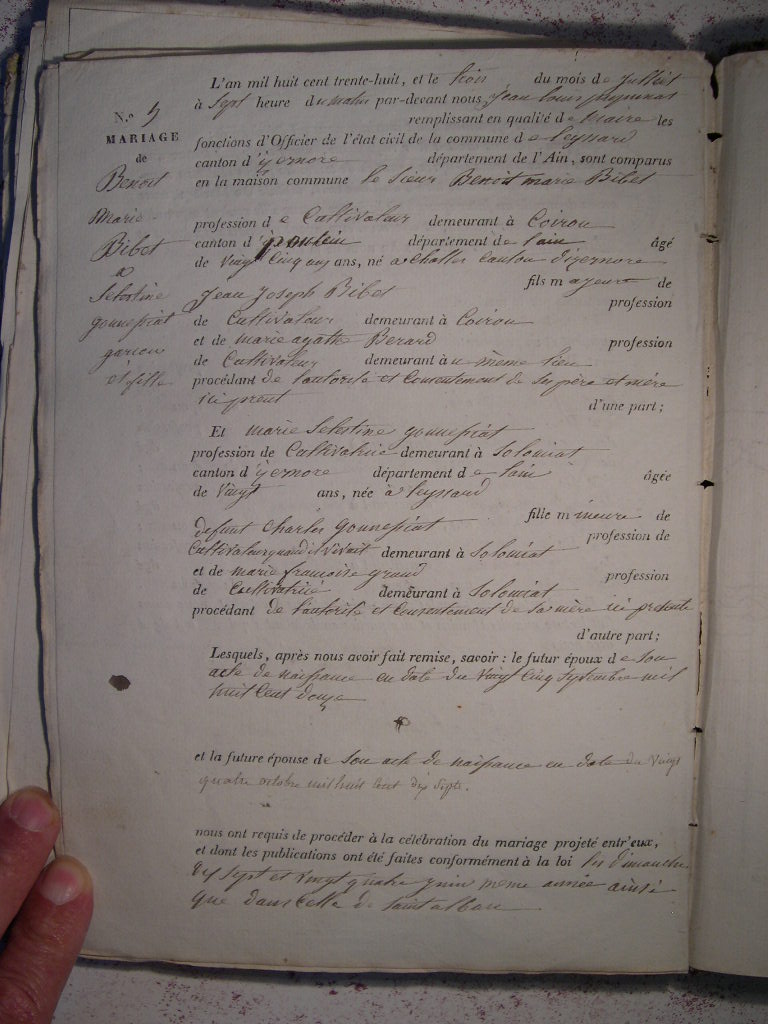 N.o 5
MARIAGE
de
Benoit
Marie
Bibet
&
Selestine
gonnepiat
garçon
et fille
L'an mil huit cent trente-huit, et le trois du mois de Juilliet
à Sept heure du matin par-devant nous Jean Louis
remplissant en qualité de Maire les
fonctions d'Officier de l'état civil de la commune de leyssard
canton d'izernore département de l'Ain, sont comparus
en la maison commune le Sieur Benoit marie Bibet
profession de Cultivateur demeurant à Coiron
canton d' département de lain âgé
de Vingt Cinq ans, né a Challes Canton d'izernore
Jean Joseph Bibet fils majeur de
profession
de Cultivateur demeurant à Coiron
et de marie agathe Berard profession
de Cultivateur demeurant au même lieu
procédant de lautorité et Consentement de Su père et mère
ici present d'une part;
Et marie Selestine gonnepiat
profession de Cultivatrice demeurant à Solomiat
canton d'izernore département de lain âgée
de Vingt ans, née à leyssard
fille mineure de
defunt Charles gonnepiat profession de
Cultivateur quand il vivait demeurant à Solomiat
et de marie francoise grand profession
de Cultivatrice demeurant à Solomiat
procédant de lautorité et Consentement de Sa mère ici présente
d'autre part;
Lesquels, après nous avoir fait remise, savoir : le futur époux de son
acte de naissance en date du Vingt Cinq Septembre mil
huit Cent douze
et la future épouse de Son acte de naissance en date du Vingt
quatre octobre mil huit Cent dix Septe.
nous ont requis de procéder à la célébration du mariage projeté entr'eux,
et dont les publications ont été faites conformément à la loi les dimanche
dix Sept et vingt quatre juin meme année ainsi
que dans Celle de Saint alban